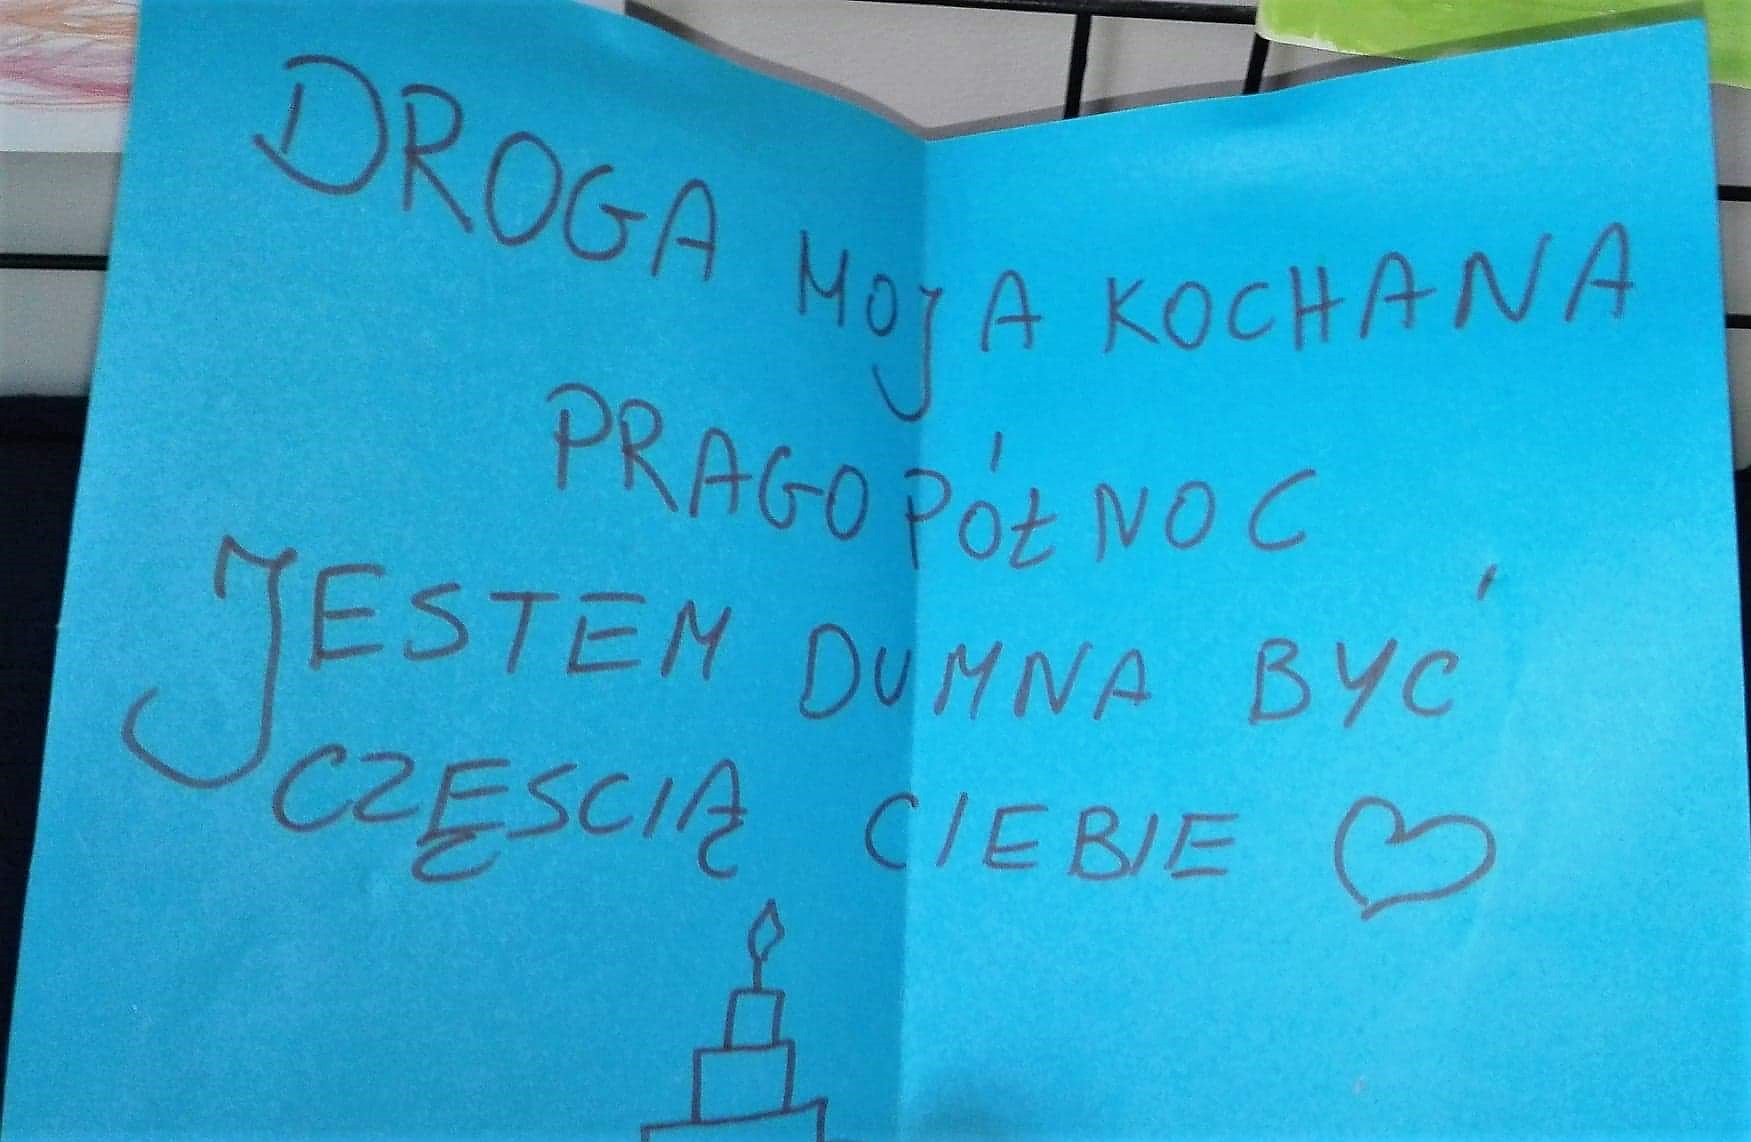 DROGA MOJA KOCHANA
PRAGOPÓŁNOC
JESTEM DUMNA BYĆ
CZĘSCIĄ CIEBIE